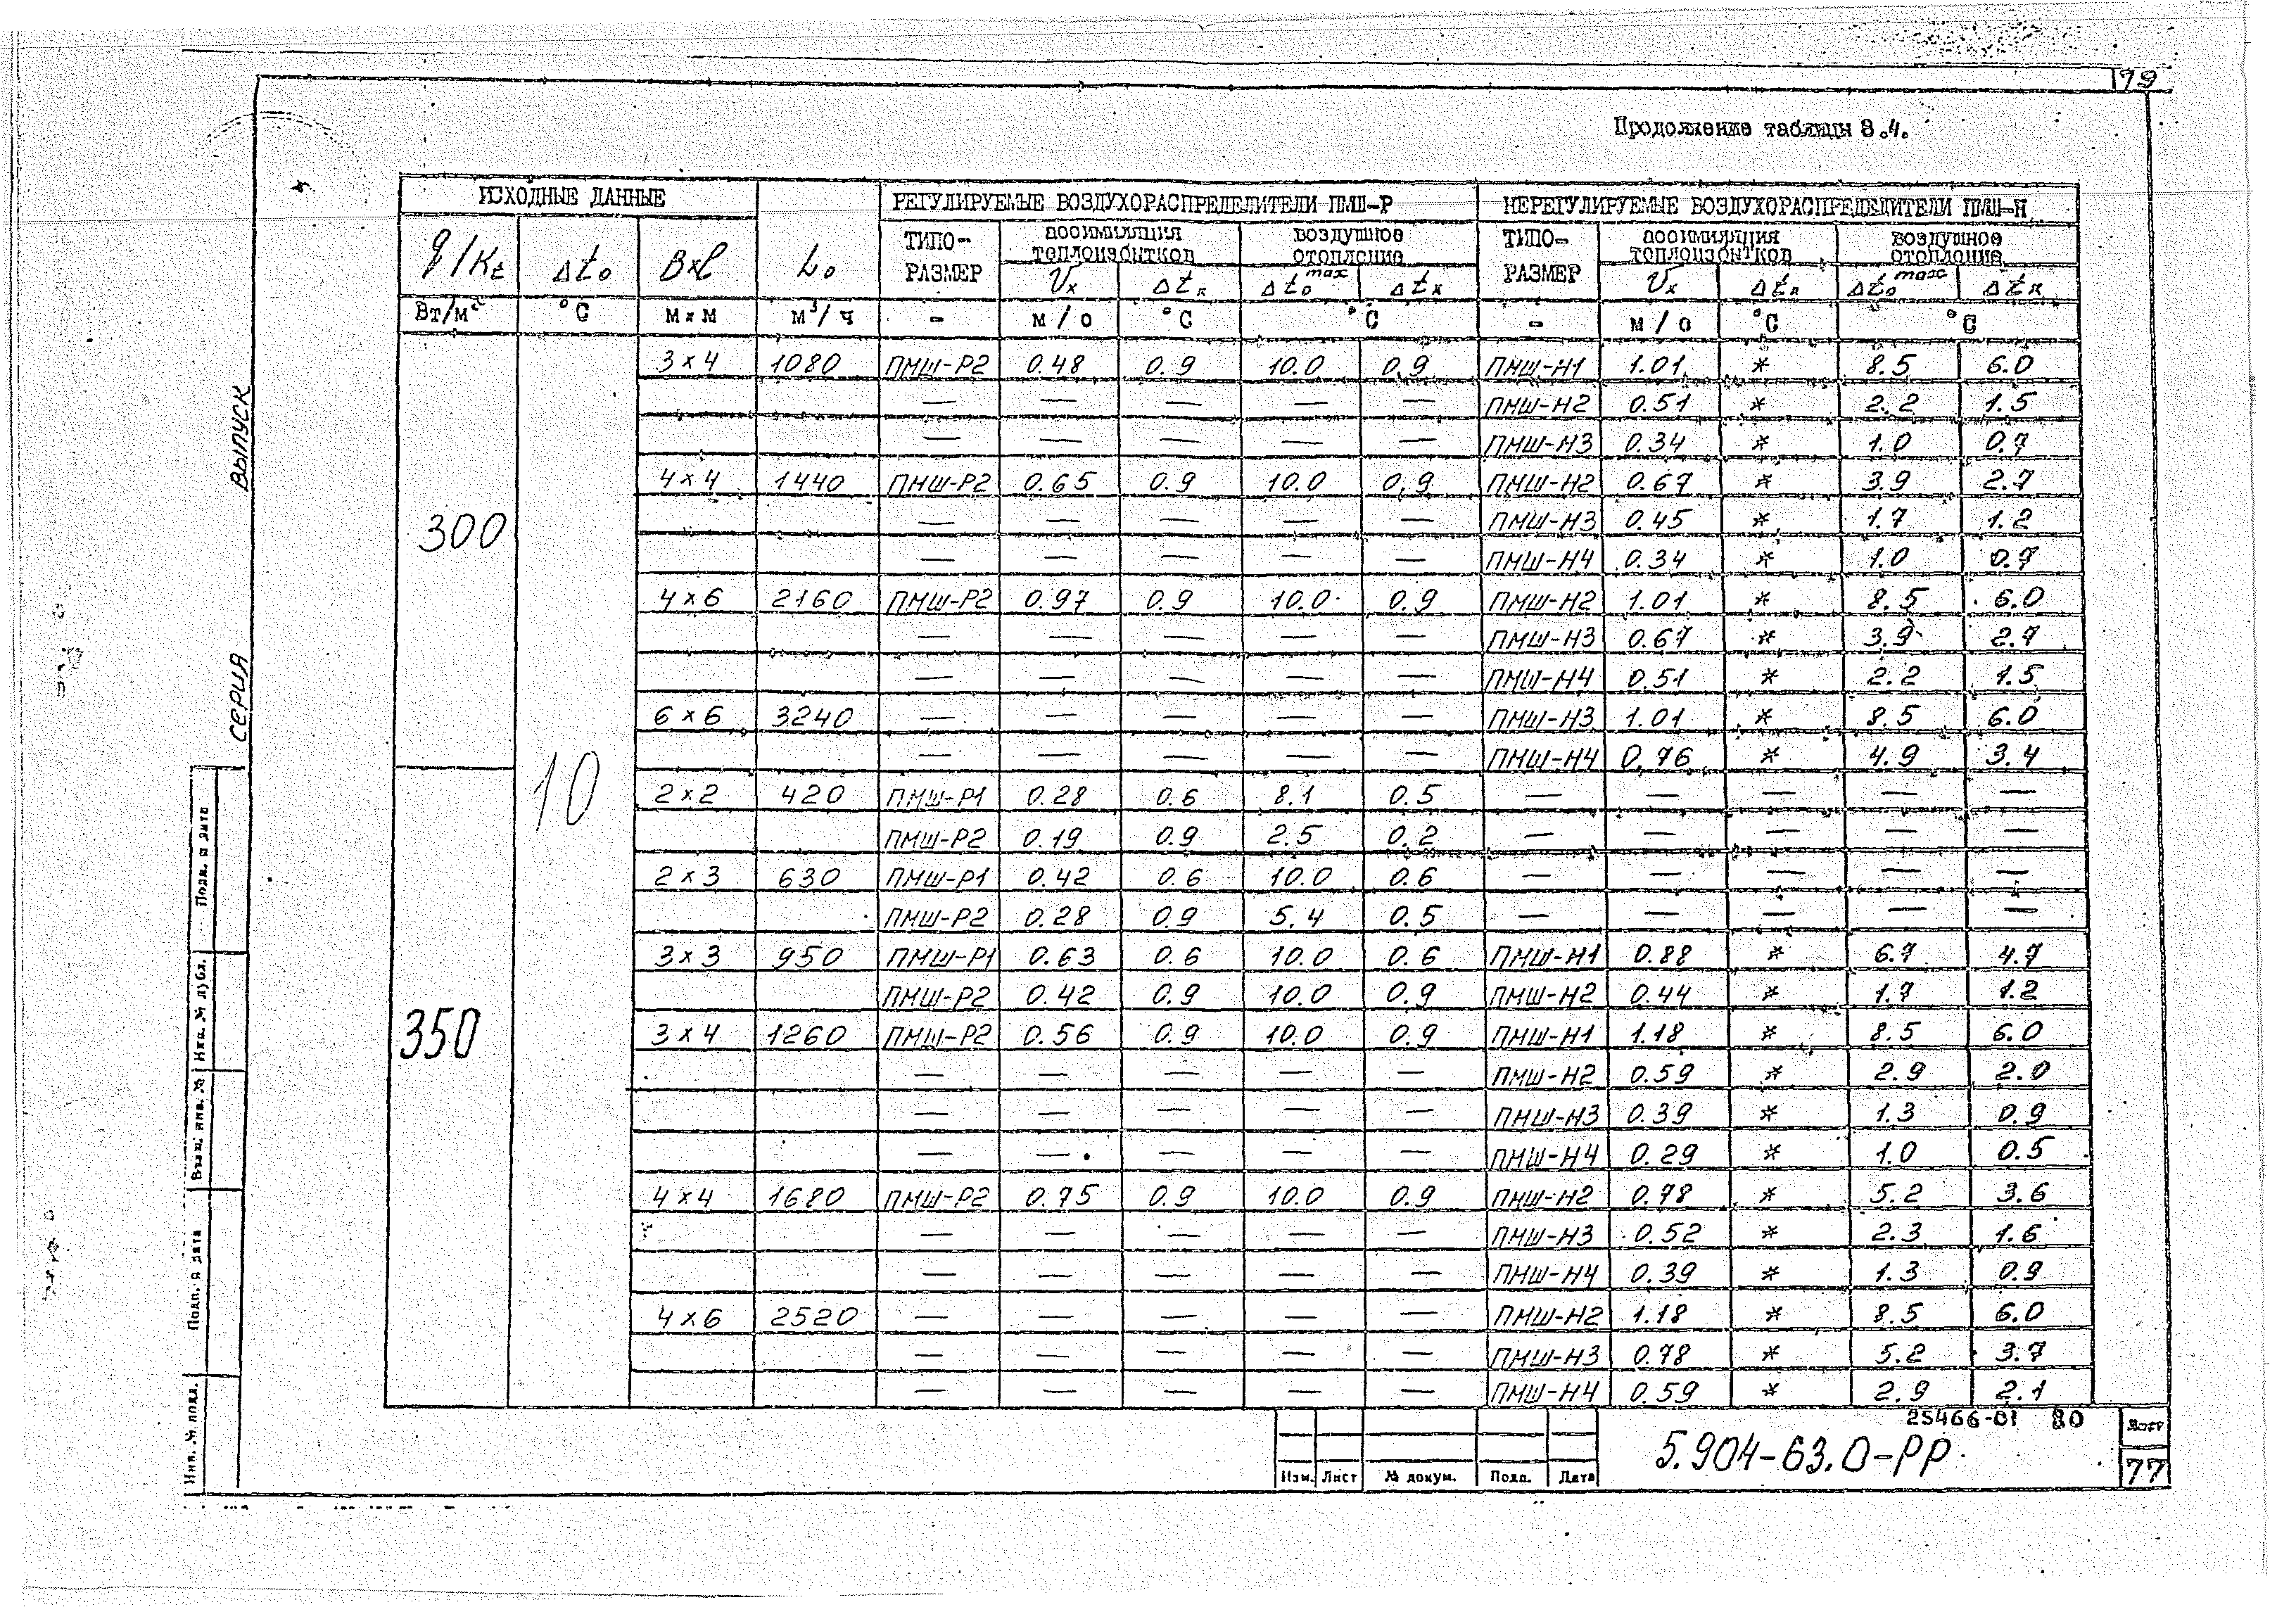 79
Продолжение таблицы 8.4.
ИСХОДНЫЕ ДАННЫЕ
РЕГУЛИРУЕМЫЕ ВОЗДУХОРАСПРЕДЕЛИТЕЛИ ПМШ-Р
НЕРЕГУЛИРУЕМЫЕ ВОЗДУХОРАСПРЕДЕЛИТЕЛИ ПМШ-Н
q/Kt Δto B×l Lo ТИПО-РАЗМЕР ассимиляция теплоизбытков воздушное отопление ТИПО-РАЗМЕР ассимиляция теплоизбытков воздушное отопление
Vx Δtx Δto max Δtx Vx Δtx Δto max Δtx
Вт/м² °С м×м м³/ч - м/с °С °С - м/с °С °С
3×4 1080 ПМШ-Р2 0.48 0.9 10.0 0.9 ПМШ-Н1 1.01 * 8.5 6.0
— — — — — ПМШ-Н2 0.51 * 2.2 1.5
— — — — — ПМШ-Н3 0.34 * 1.0 0.7
4×4 1440 ПМШ-Р2 0.65 0.9 10.0 0.9 ПМШ-Н2 0.67 * 3.9 2.7
300 — — — — — ПМШ-Н3 0.45 * 1.7 1.2
— — — — — ПМШ-Н4 0.34 * 1.0 0.7
4×6 2160 ПМШ-Р2 0.97 0.9 10.0 0.9 ПМШ-Н2 1.01 * 8.5 6.0
— — — — — ПМШ-Н3 0.67 * 3.9 2.7
— — — — — ПМШ-Н4 0.51 * 2.2 1.5
6×6 3240 — — — — — ПМШ-Н3 1.01 * 8.5 6.0
— — — — — ПМШ-Н4 0.76 * 4.9 3.4
10 2×2 420 ПМШ-Р1 0.28 0.6 8.1 0.5 — — — — —
ПМШ-Р2 0.19 0.9 2.5 0.2 — — — — —
2×3 630 ПМШ-Р1 0.42 0.6 10.0 0.6 — — — — —
ПМШ-Р2 0.28 0.9 5.4 0.5 — — — — —
3×3 950 ПМШ-Р1 0.63 0.6 10.0 0.6 ПМШ-Н1 0.88 * 6.7 4.7
ПМШ-Р2 0.42 0.9 10.0 0.9 ПМШ-Н2 0.44 * 1.7 1.2
350 3×4 1260 ПМШ-Р2 0.56 0.9 10.0 0.9 ПМШ-Н1 1.18 * 8.5 6.0
— — — — — ПМШ-Н2 0.59 * 2.9 2.0
— — — — — ПМШ-Н3 0.39 * 1.3 0.9
— — — — — ПМШ-Н4 0.29 * 1.0 0.5
4×4 1680 ПМШ-Р2 0.75 0.9 10.0 0.9 ПМШ-Н2 0.78 * 5.2 3.6
— — — — — ПМШ-Н3 0.52 * 2.3 1.6
— — — — — ПМШ-Н4 0.39 * 1.3 0.9
4×6 2520 — — — — — ПМШ-Н2 1.18 * 8.5 6.0
— — — — — ПМШ-Н3 0.78 * 5.2 3.7
— — — — — ПМШ-Н4 0.59 * 2.9 2.1
25466-01 80
5.904-63.0-РР
Лист
77
Изм. Лист № докум. Подп. Дата
ВЫПУСК
СЕРИЯ
Подп. и дата
Инв. № дубл.
Взам. инв. №
Подп. и дата
Инв. № подл.